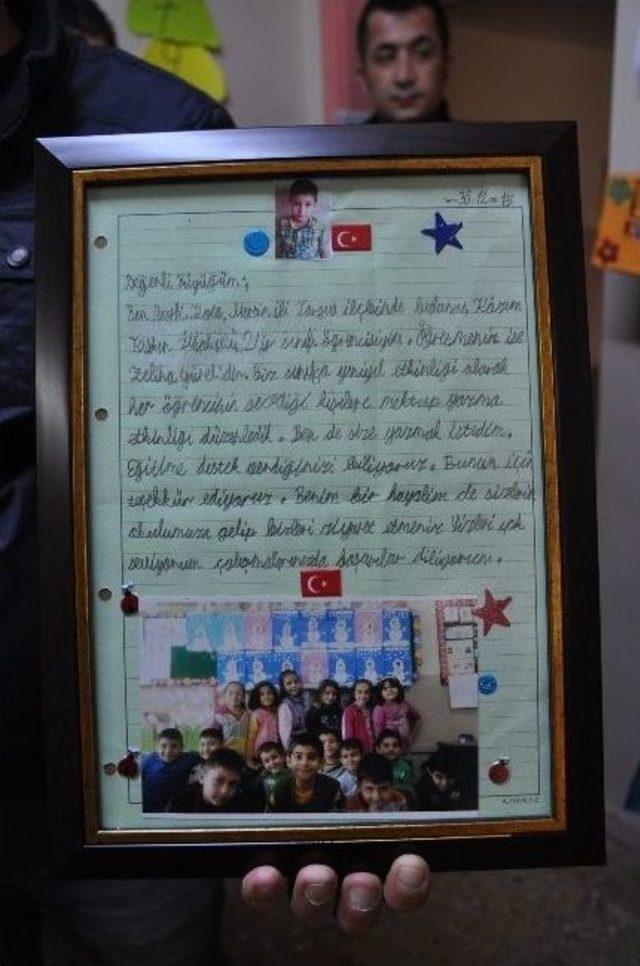 30.12.15
Değerli Büyüğüm;
Ben Koca, Mersin ili Tarsus ilçesinde Kâzım
sınıf öğrencisiyim. Öğretmenim ise
Zeliha Gürel'dir. Biz sınıfça yeniyıl etkinliği olarak
her öğrencinin sevdiği kişilere mektup yazma
etkinliği düzenledik. Ben de size yazmak istedim.
Eğitime destek verdiğinizi biliyoruz. Bunun için
teşekkür ediyoruz. Benim bir hayalim de sizlerin
okulumuza gelip bizleri ziyaret etmeniz. Sizleri çok
seviyorum çalışmalarınızda başarılar diliyorum.